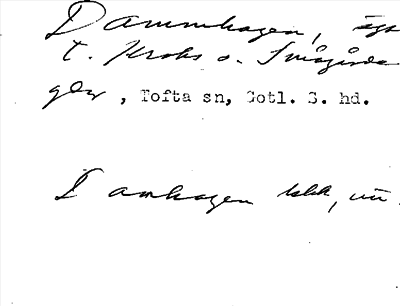 Dammhagen, äga
t. Kroks o. Smågårda
gdr, Tofta sn, Gotl. S. hd.
Damhagen